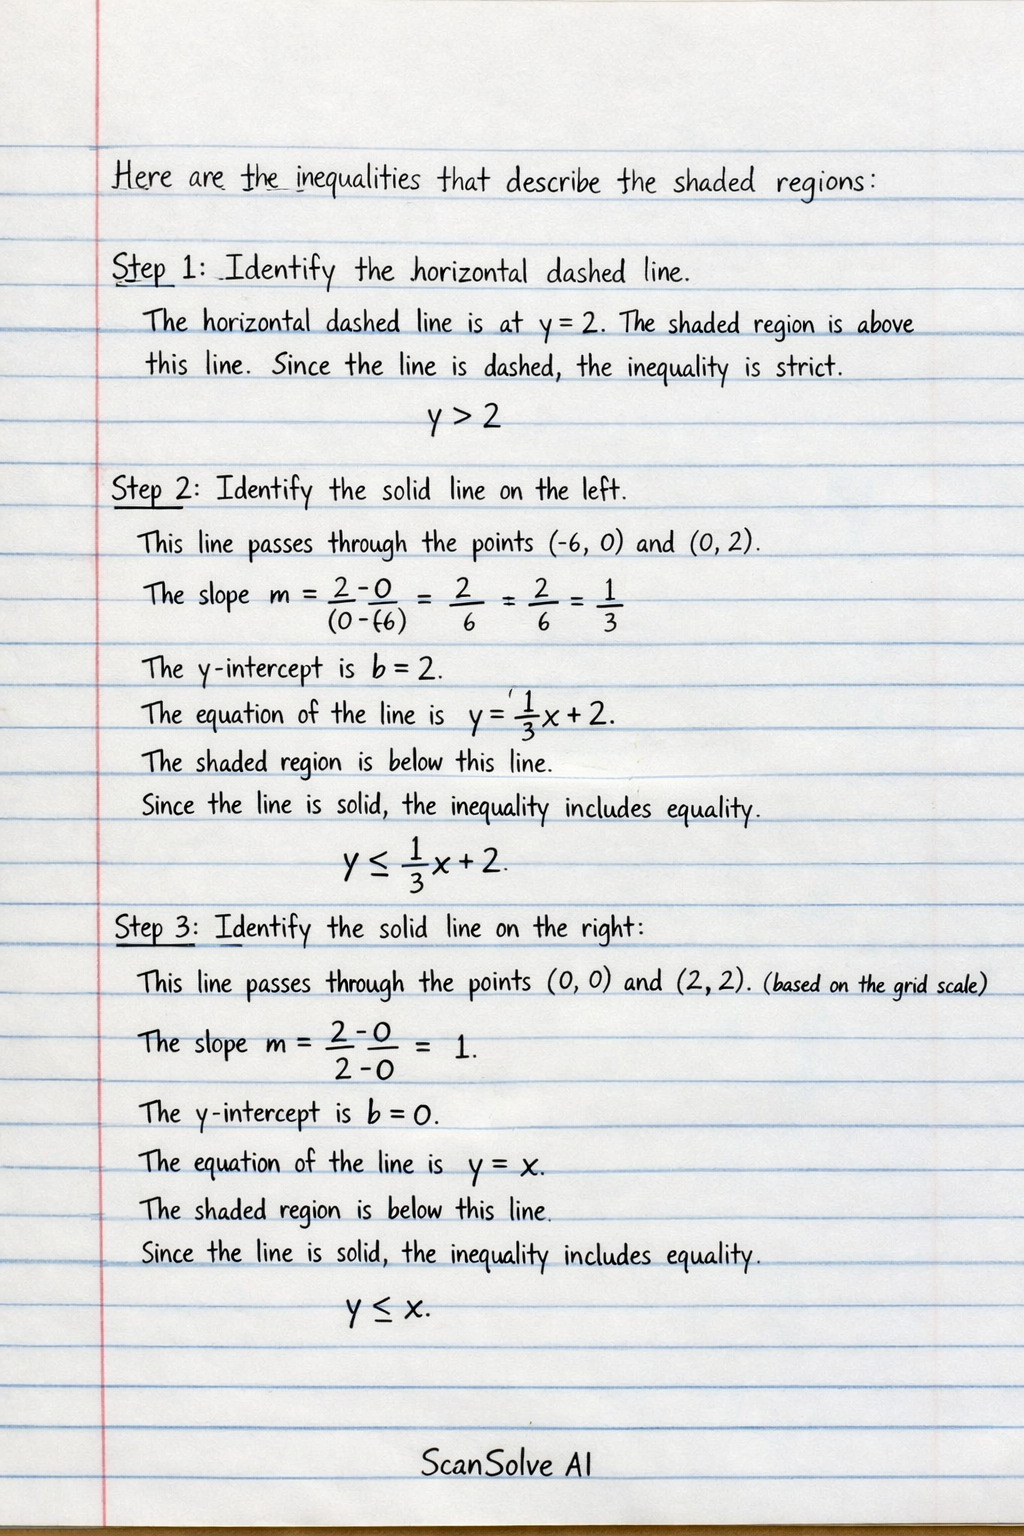 Here are the inequalities that describe the shaded regions:
Step 1: Identify the horizontal dashed line.
The horizontal dashed line is at y = 2. The shaded region is above
this line. Since the line is dashed, the inequality is strict.
y > 2
Step 2: Identify the solid line on the left.
This line passes through the points (-6, 0) and (0, 2).
The slope m = \frac{2-0}{(0-(-6)} = \frac{2}{6} = \frac{2}{6} = \frac{1}{3}
The y-intercept is b = 2.
The equation of the line is y = \frac{1}{3}x + 2.
The shaded region is below this line.
Since the line is solid, the inequality includes equality.
y ≤ \frac{1}{3}x + 2.
Step 3: Identify the solid line on the right:
This line passes through the points (0, 0) and (2, 2). (based on the grid scale)
The slope m = \frac{2-0}{2-0} = 1.
The y-intercept is b = 0.
The equation of the line is y = x.
The shaded region is below this line.
Since the line is solid, the inequality includes equality.
y ≤ x.
ScanSolve AI